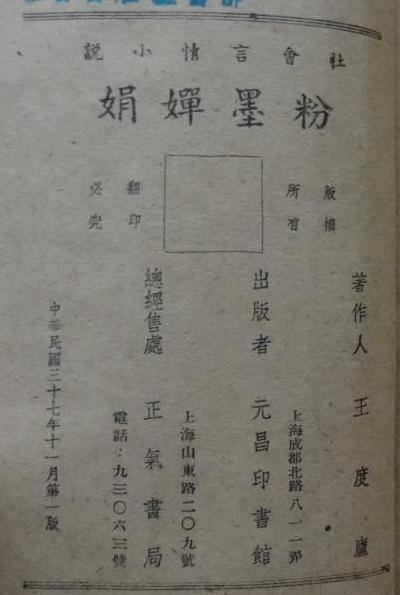 社會言情小說
粉墨嬋娟
版權
所有
翻印
必究
著作人 王度廬
上海成都北路八一一弄
出版者 元昌印書館
上海山東路二〇九號
總經售處 正氣書局
電話：九三〇六三號
中華民國三十七年十一月第一版